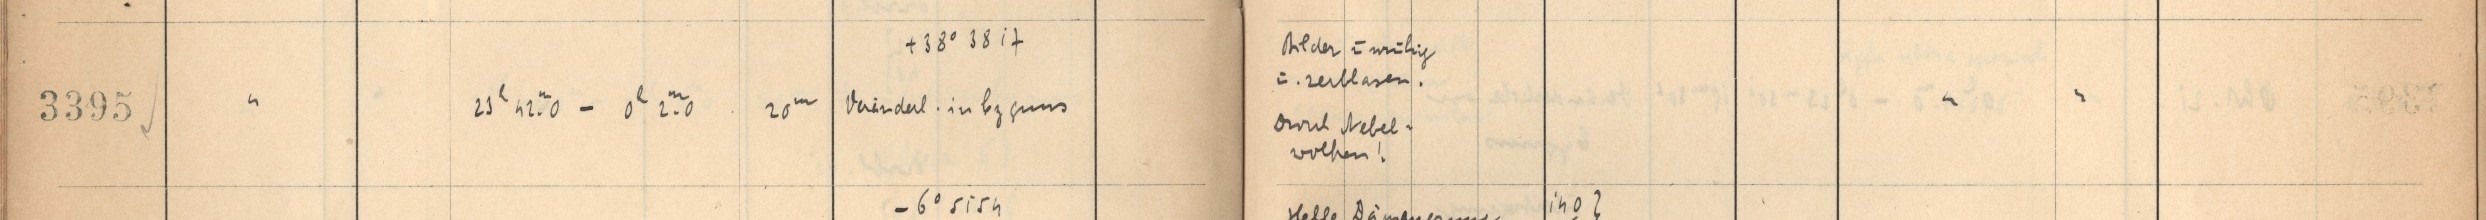 +38° 38 17
3395 " 23h 42m.0 - 0h 2m.0 20m Veränderl. in Cygnus
Bilder unruhig
u. zerblasen.
Durch Nebel-
wolken!
" "
-6° 5154
Helle Dämmerung